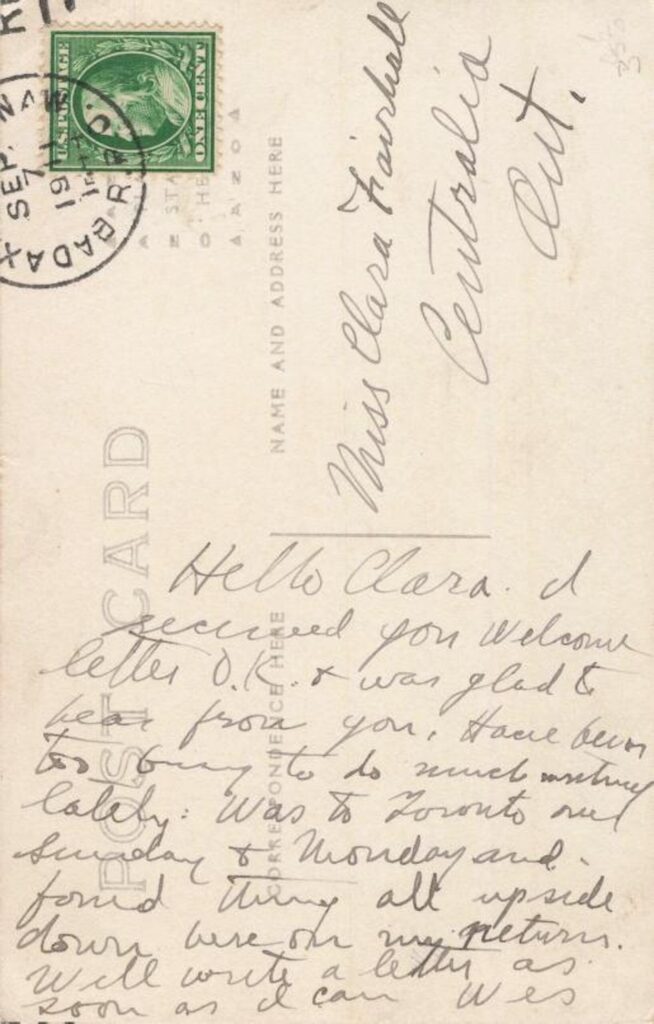 U.S. POSTAGE
ONE CENT
SEP
7
1911
R.P.O.
POST CARD
NAME AND ADDRESS HERE
CORRESPONDENCE HERE
Miss Clara Fairhall
Centralia
Ont.
Hello Clara. I
received you welcome
letter O.K. & was glad to
hear from you. Have been
too busy to do much writing
lately: Was to Toronto over
Sunday & Monday and
found thing all upside
down here on my return.
Will write a letter as
soon as I can Wes